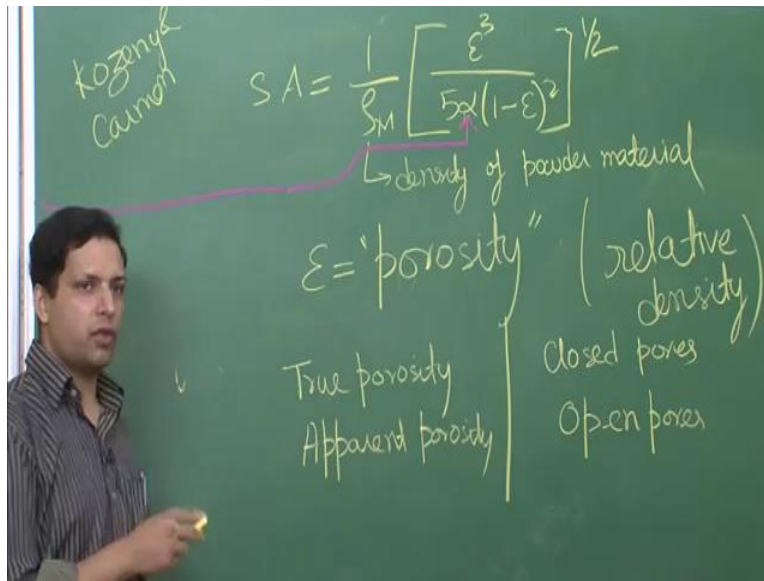 Kozenyk
Carmon
SA = 1/ρM [ε³ / 5α(1-ε)²]^1/2
↳ density of powder material
ε = "porosity" (relative density)
True porosity | Closed pores
Apparent porosity | Open pores